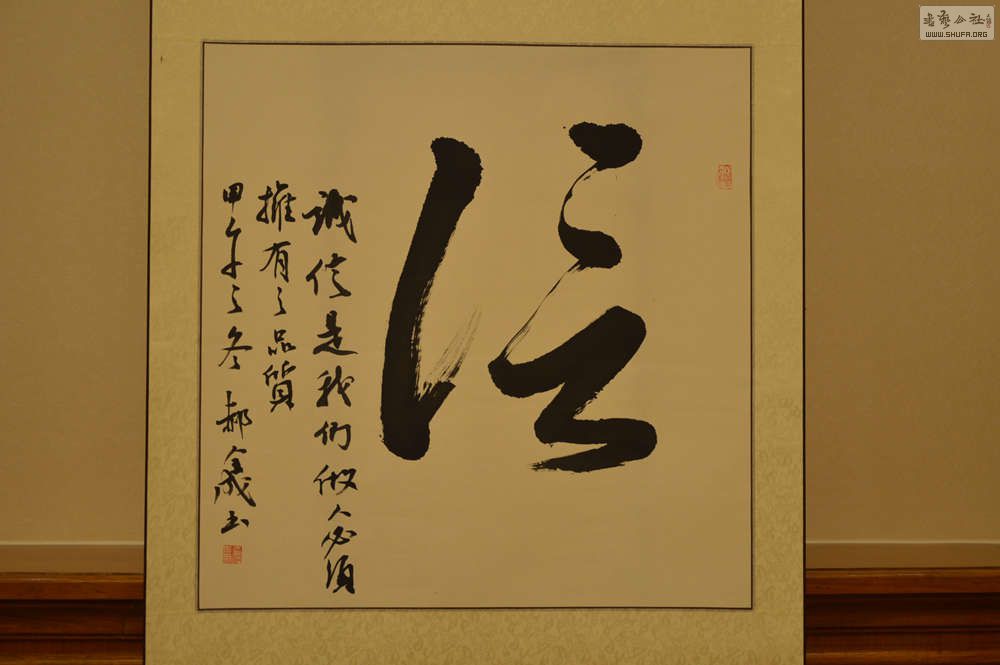 信
誠信是我們做人必須
擁有之品質
甲午之冬 郝金成书
书艺公社
WWW.SHUFA.ORG